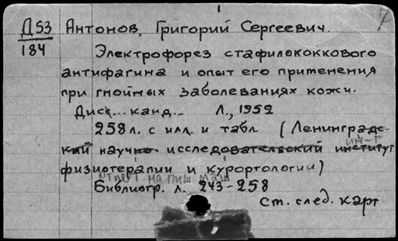 Д53 Антонов, Григорий Сергеевич.
184
Электрофорез стафилококкового
антифагина и опыт его применения
при гнойных заболеваниях кожи.
Дисс... канд... Л., 1952
258 л. с илл. и табл. (Ленинградс-
кий научно-исследовательский институт
ин-т
физиотерапии и курортологии)
Отпеч. на пиш. маш.
Библиогр. л. 243-258
Ст. след. карт